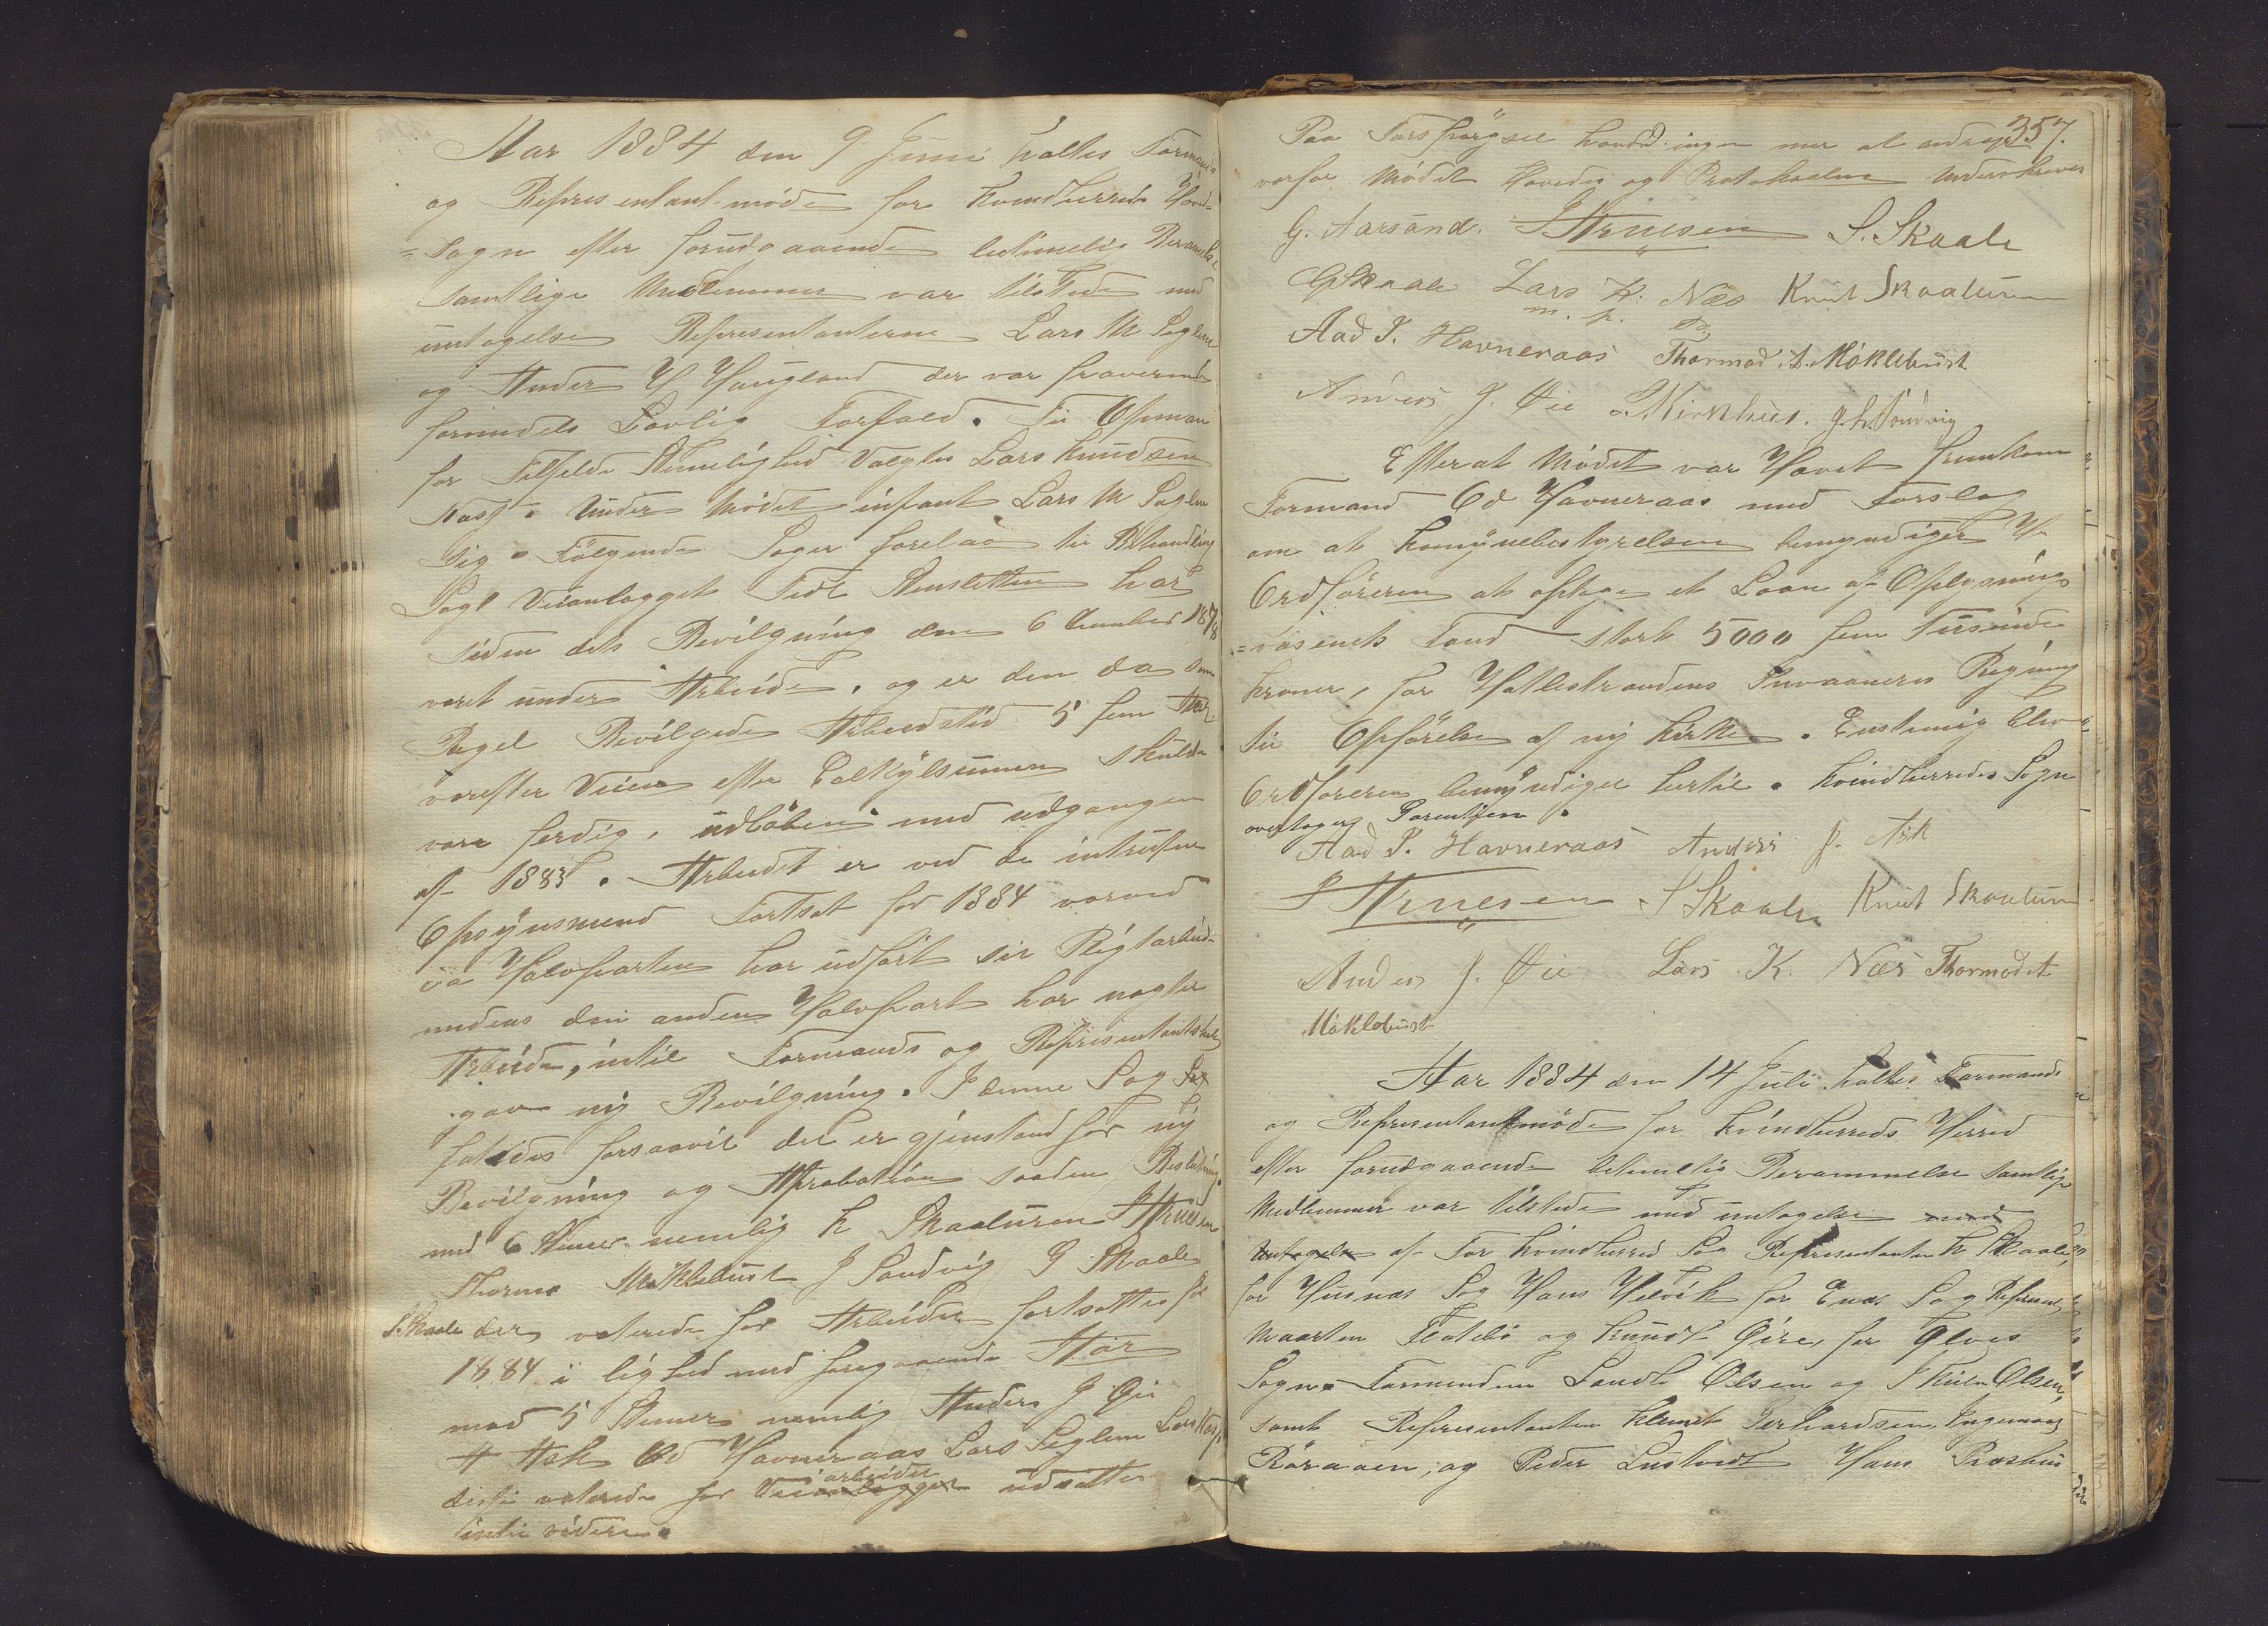 Aar 1884 den 9 Juni holtes Formands
og Representant-möde for Kvindherreds Hoved
=Sogn efter forudgaaende betimelig Beramelse
samtlige Medlemmer var tilstede med
untagelse Representanterne Lars M Seglem
og Anders H Haugland der var fraverende
formedels Lovlig Forfald. Til Opman
for Tilfelde Stemelighed Valgtes Lars Knudsen
Næss. Under Mödet infant Lars M Seglem
sig. Fölgende Sager forelaa til Behandling
Sag 1 Veianlagget Fidt Ænstetten har
siden dets Bevilgning den 6 1878
varet under Arbeide, og er den da som
Regel Bevilgede Arbeidstid 5 fem Aar
vorefter Veien efter Calkylsumen skulde
vare ferdig, udlöben med udgangen
af 1883. Arbeidet er ved de
Opsynsmend Fortsat for 1884 vorved
ca Halvparten har udfört sit Pligtarbeide
medens den anden Halvpart har nogter
Arbeide, intil Formands og Representantskab
gav ny Bevilgning. I denne Sag
fatedes forsaavit det er gjenstand for ny
Bevilgning og Aprobation saadan Beslutning.
med 6 Stimer nemlig K Skaaluren
Thormo Möklebust J Sandvig G Skaale
S. Skaale der voterede for Arbeidet fortsattes for
1884 i lighed med foregaaende Aar
mod 5 Stimer nemlig Anders J Øie
A Ask Od Havneraas Lars Seglem Lars Næss
disse voterede for Veianlagget arbeidet udsattes
intil videre.

357.
Paa Forspörgsel havde ingen mer at andrage
vorfor Mödet Hævedes og Protokollen Underskrives
G. Aarsand. S. Skaale
G Skaale Lars K. Næs Knut Skaaluren
m. p.
Aad P. Havneraas Thormod A. Möklebust
Anders J. Øie Kirkhus. J. L. Sandvig
Efterat Mödet var Hævet fremkom
Formand Od Havneraas med Forslag
om at Komynebestyrelsen bemyndiger Hr
Ordföreren at optage et Laan af Oplysnings
=väsenets Fond stort 5000 fem Tusinde
kroner, for Hattestrandens Invaaneres Regning
til Opförelse af ny Kirke. Enstemig blev
Ordföreren bemyndiget hertil. Kvindherreds Sogn
overtager Garentien.
Aad P. Havneraas Anders J. Ask
S Skaale Knut Skaaluren
Anders J. Øie Lars K. Næs Thormod A
Möklebust
Aar 1884 den 14 Juli holtes Formands
og Representantmöde for Kvindherreds Herred
efter forudgaaende betimelig Berammelse samtlige
Medlemmer var tilstede med untagelse med
untagelse af For Kvindherred Sog Representanten K Skaale,
for Husnæs Sog Hans Helvik for Enæs Sog Represent
Maarten Flatebö og Knudt Øire, for Ølves
Sogn Formendene Samt Olsen og Skule Olsen,
samt Representanten Klemet Gerhardsen Ingemaar
Röraaen, og Peder Lustvedt Hans Præsthus